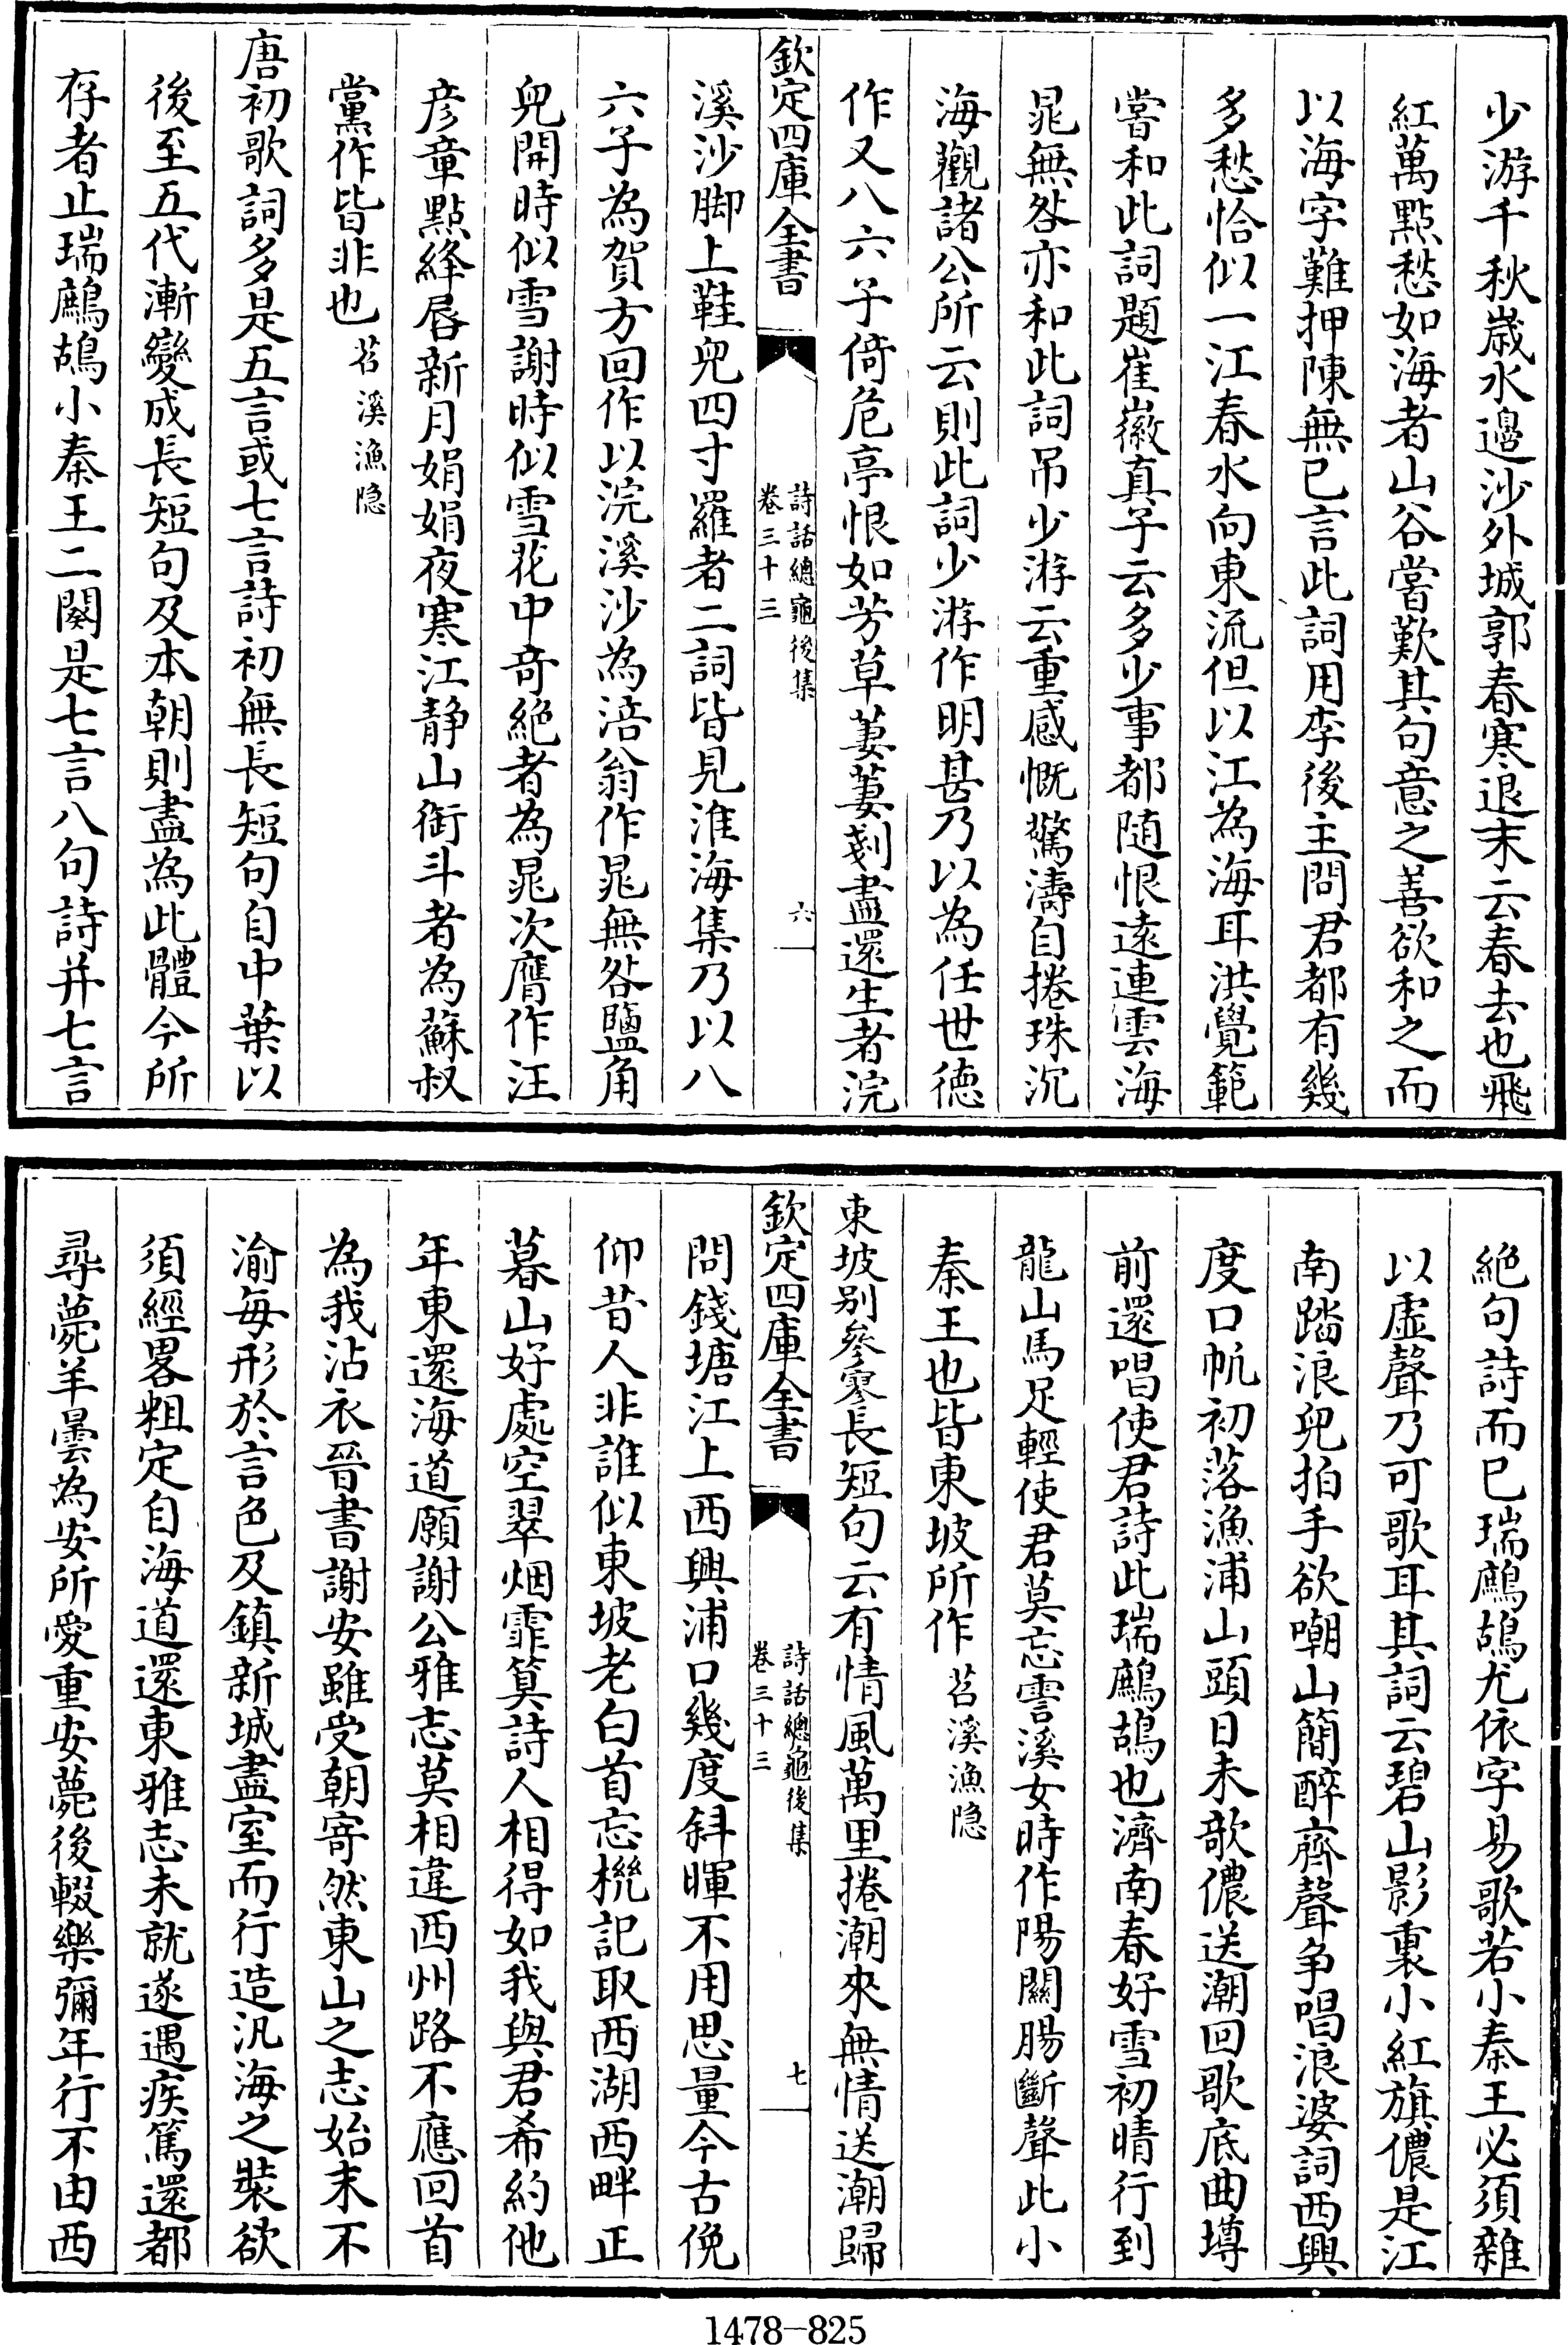 少游千秋歲水邉沙外城郭春寒退末云春去也飛
紅萬點愁如海者山谷嘗歎其句意之善欲和之而
以海字難押陳無已言此詞用李後主問君都有幾
多愁恰似一江春水向東流但以江為海耳洪覺範
嘗和此詞題崔徽真子云多少事都随恨逺連雲海
晁無咎亦和此詞吊少游云重感慨驚濤自捲珠沉
海觀諸公所云則此詞少游作明甚乃以為任世德
作又八六子倚危亭恨如芳草萋萋剗盡還生者浣
欽定四庫全書
詩話總龜後集
卷三十三
六
溪沙脚上鞋兒四寸羅者二詞皆見淮海集乃以八
六子為賀方回作以浣溪沙為涪翁作晁無咎鹽角
兒開時似雪謝時似雪花中竒絶者為晁次膺作汪
彦章點絳唇新月娟娟夜寒江静山銜斗者為蘇叔
黨作皆非也 苕溪漁隐
唐初歌詞多是五言或七言詩初無長短句自中葉以
後至五代漸變成長短句及本朝則盡為此體今所
存者止瑞鷓鴣小秦王二闋是七言八句詩并七言
絶句詩而已瑞鷓鴣尤依字易歌若小秦王必須雜
以虚聲乃可歌耳其詞云碧山影裏小紅旗儂是江
南踏浪兒拍手欲嘲山簡醉齊聲争唱浪婆詞西興
度口帆初落漁浦山頭日未欹儂送潮回歌底曲墫
前還唱使君詩此瑞鷓鴣也濟南春好雪初晴行到
龍山馬足輕使君莫忘霅溪女時作陽關腸斷聲此小
秦王也皆東坡所作 苕溪漁隐
東坡别參寥長短句云有情風萬里捲潮來無情送潮歸
欽定四庫全書
詩話總龜後集
卷三十三
七
問錢塘江上西興浦口幾度斜暉不用思量今古俛
仰昔人非誰似東坡老白首忘機記取西湖西畔正
暮山好處空翠烟霏算詩人相得如我與君希約他
年東還海道願謝公雅志莫相違西州路不應回首
為我沾衣晉書謝安雖受朝寄然東山之志始末不
渝每形於言色及鎮新城盡室而行造汎海之裝欲
須經畧粗定自海道還東雅志未就遂遇疾篤還都
尋薨羊曇為安所愛重安薨後輟樂彌年行不由西
1478-825